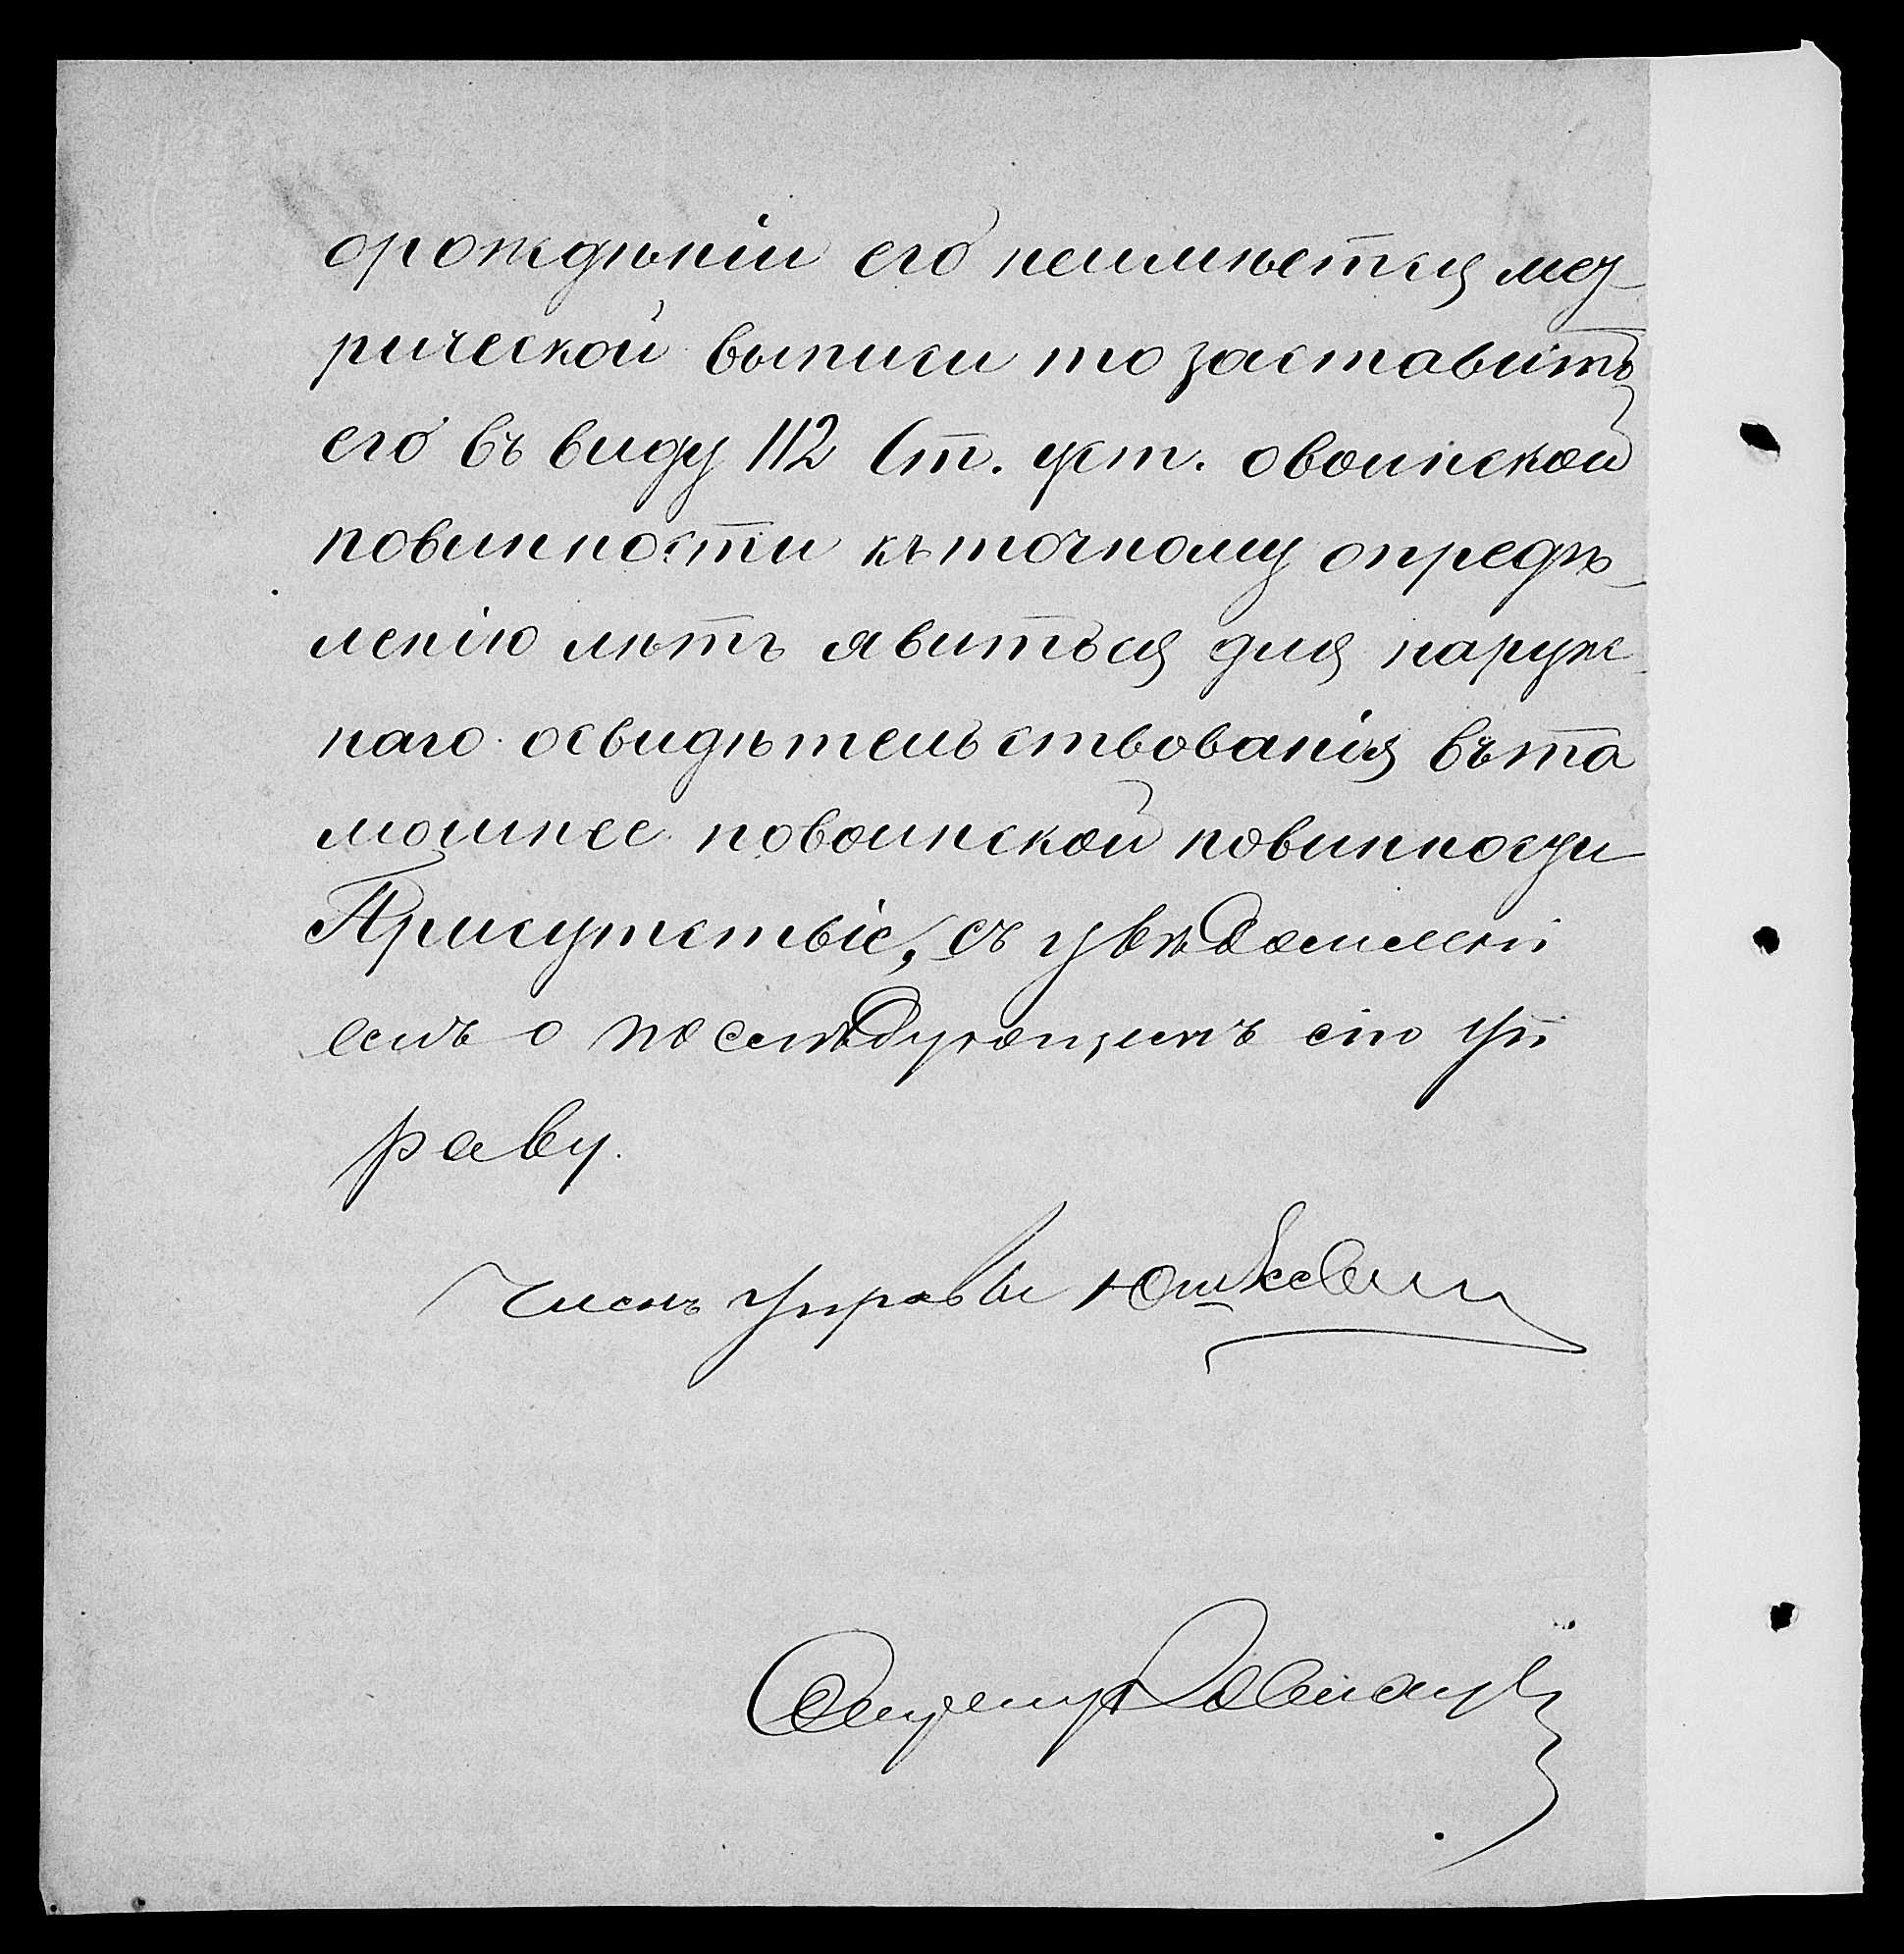 орождѣніи его неимѣется мет-
рической выписи то заставить
его въ виду 112 Ст. уст. овоинской
повинности къ точному опредѣ-
ленію лѣтъ явиться для наруж-
наго освидѣтельствованія въ та
мошнее повоинской повинности
Присутствіе, съ увѣдомлені
емъ о послѣдующемъ сію Уп
раву.
Членъ Управы Юшкевич